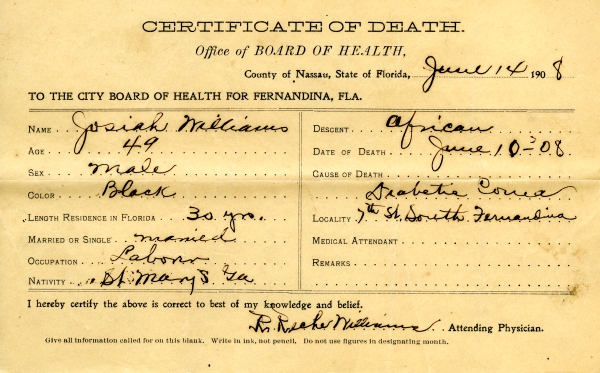 CERTIFICATE OF DEATH.
Office of BOARD OF HEALTH,
County of Nassau, State of Florida, June 14 1908
TO THE CITY BOARD OF HEALTH FOR FERNANDINA, FLA.
NAME Josiah Williams
AGE 49
SEX Male
COLOR Black
LENGTH RESIDENCE IN FLORIDA 30 yrs.
MARRIED OR SINGLE married
OCCUPATION Labour
NATIVITY St Marys Ga
DESCENT African
DATE OF DEATH June 10-08
CAUSE OF DEATH
Diabetic Coma
LOCALITY 7th St. South Fernandina
MEDICAL ATTENDANT
REMARKS
I hereby certify the above is correct to best of my knowledge and belief.
Williams Attending Physician.
Give all information called for on this blank. Write in ink, not pencil. Do not use figures in designating month.